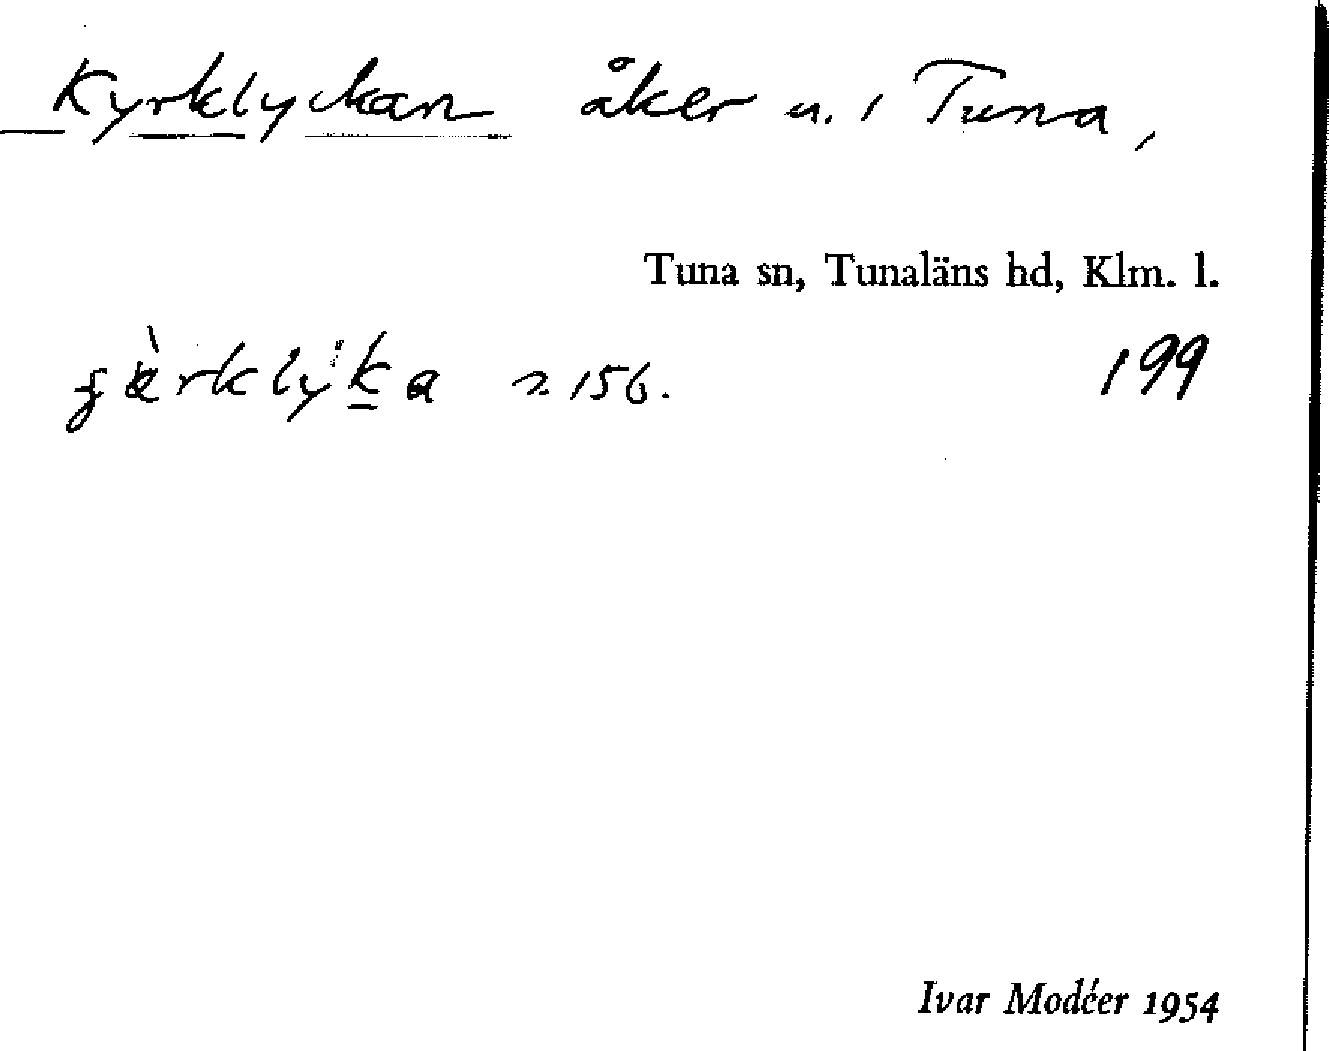 Kyrklyckan åker u. i Tuna,
Tuna sn, Tunaläns hd, Klm. l.
2 156. 199
Ivar Modéer 1954